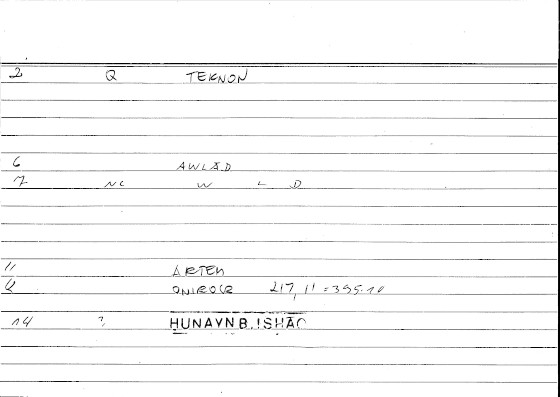 2 Q TEKNON
6 AWLĀD
7 NC W L D
11 ARTEM
Q ONIROCR 217, 11 = 395.10
14 ? HUNAYN B. ISHĀQ